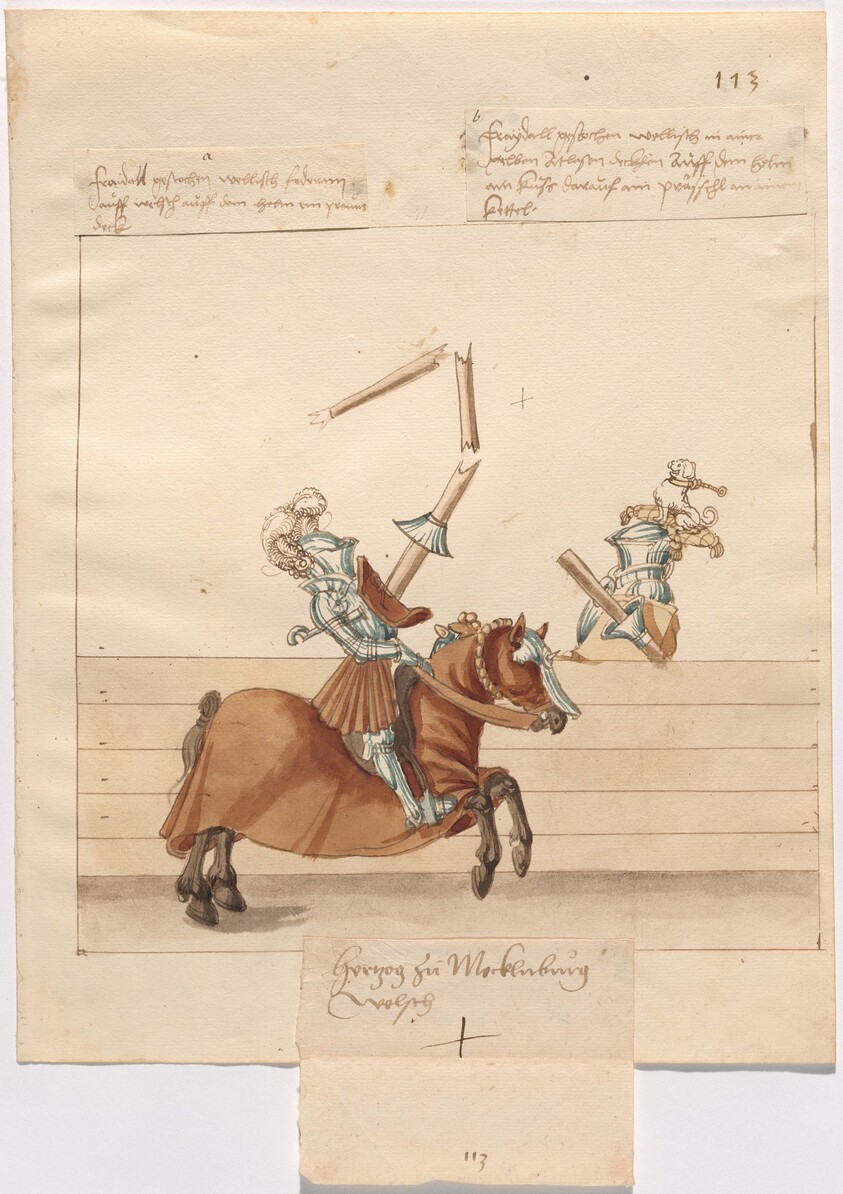 113
a
fraidall gestochen wellisch federnn
auff welsch auff dem helm ein praune
deck
b
Fraydall gestochen wellisch in ainer
gelben Atlasen deckhen Auff dem helm
ain darauf ain an ainem
kettel.
Hertzog zu Mecklnburg
Welsch
113